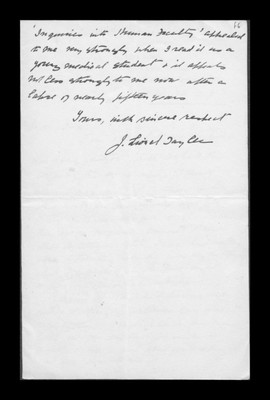 16
'Inquiries into Human Faculty' appealed
to me very strongly when I read it as a
young medical student & it appeals
not less strongly to me now after a
lapse of nearly fifteen years
Yours, with sincere respect
J. Lionel Tayler